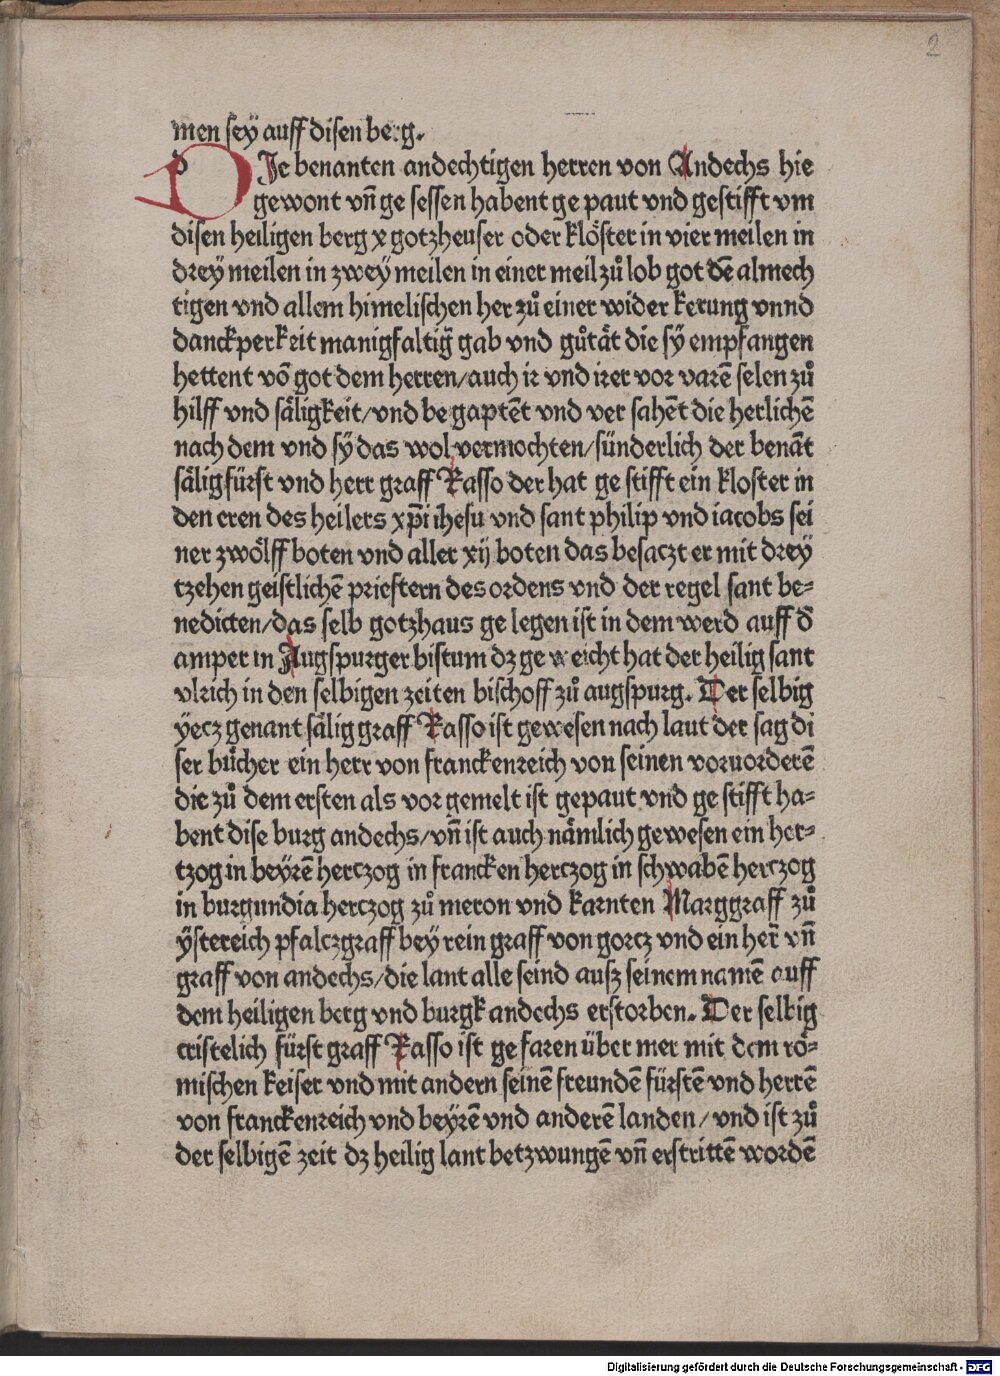 2
men sey auff disen berg.
DIe benanten andechtigen herren von Andechs hie
gewont vn̄ ge sessen habent ge paut vnd gestifft vm
disen heiligen berg x gotzheuser oder klöster in vier meilen in
drey meilen in zwey meilen in einer meil zů lob got dē almech
tigen vnd allem himelischen her zů einer wider kerung vnnd
danckperkeit manigfaltig̃ gab vnd gůtät die sy̋ empfangen
hettent vō got dem herren/auch ir vnd irer vor varē selen zů
hilff vnd säligkeit/vnd be gaptēt vnd ver sahēt die herlichē
nach dem vnd sy̋ das wol vermochten/sünderlich der benāt
sälig fürst vnd herr graff Rasso der hat ge stifft ein kloster in
den eren des heilers xp̄i ihesu vnd sant philip vnd iacobs sei
ner zwölff boten vnd aller xij boten das besaczt er mit drey
tzehen geistlichē priestern des ordens vnd der regel sant be⸗
nedicten/das selb gotzhaus ge legen ist in dem werd auff d̄
amper in Augspurger bistum dz ge weicht hat der heilig sant
vlrich in den selbigen zeiten bischoff zů augspurg. Der selbig
yecz genant sälig graff Rasso ist gewesen nach laut der sag di
ser bücher ein herr von franckenreich von seinen voruorderē
die zů dem ersten als vor gemelt ist gepaut vnd ge stifft ha⸗
bent dise burg andechs/vn̄ ist auch nämlich gewesen ein her⸗
tzog in beyrē herczog in francken herczog in schwabē herczog
in burgundia herczog zů meron vnd karnten Marggraff zů
ÿstereich pfalczgraff bey rein graff von gorcz vnd ein her̄ vn̄
graff von andechs/die lant alle seind ausz seinem namē auff
dem heiligen berg vnd burgk andechs erstorben. Der selbig
cristelich fürst graff Rasso ist ge faren über mer mit dem rö⸗
mischen keiser vnd mit andern seinē freundē fürstē vnd herrē
von franckenreich vnd beyrē vnd anderē landen/ vnd ist zů
der selbigē zeit dz heilig lant betzwungē vn̄ erstrittē wordē
Digitalisierung gefördert durch die Deutsche Forschungsgemeinschaft - DFG